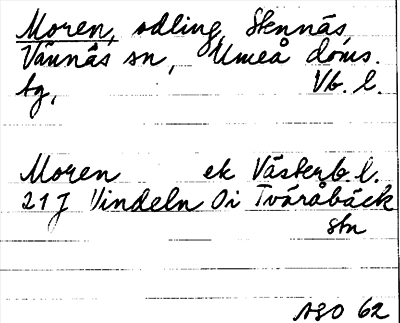 Moren, odling, Stennäs,
Vännäs sn, Umeå doms.
tg, Vb. l.
Moren ek Västerb. l.
21J Vindeln Öi Tväråbäck
stn
ASO 62